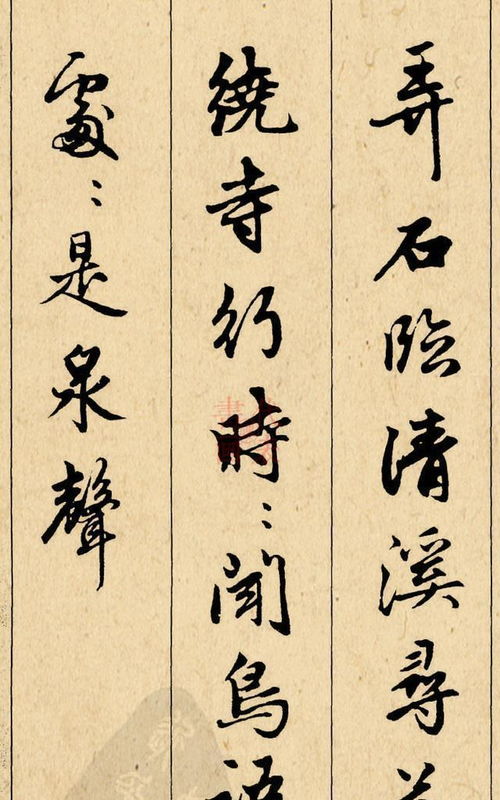 弄石臨清溪尋
繞寺行時〻聞鳥語
處〻是泉聲